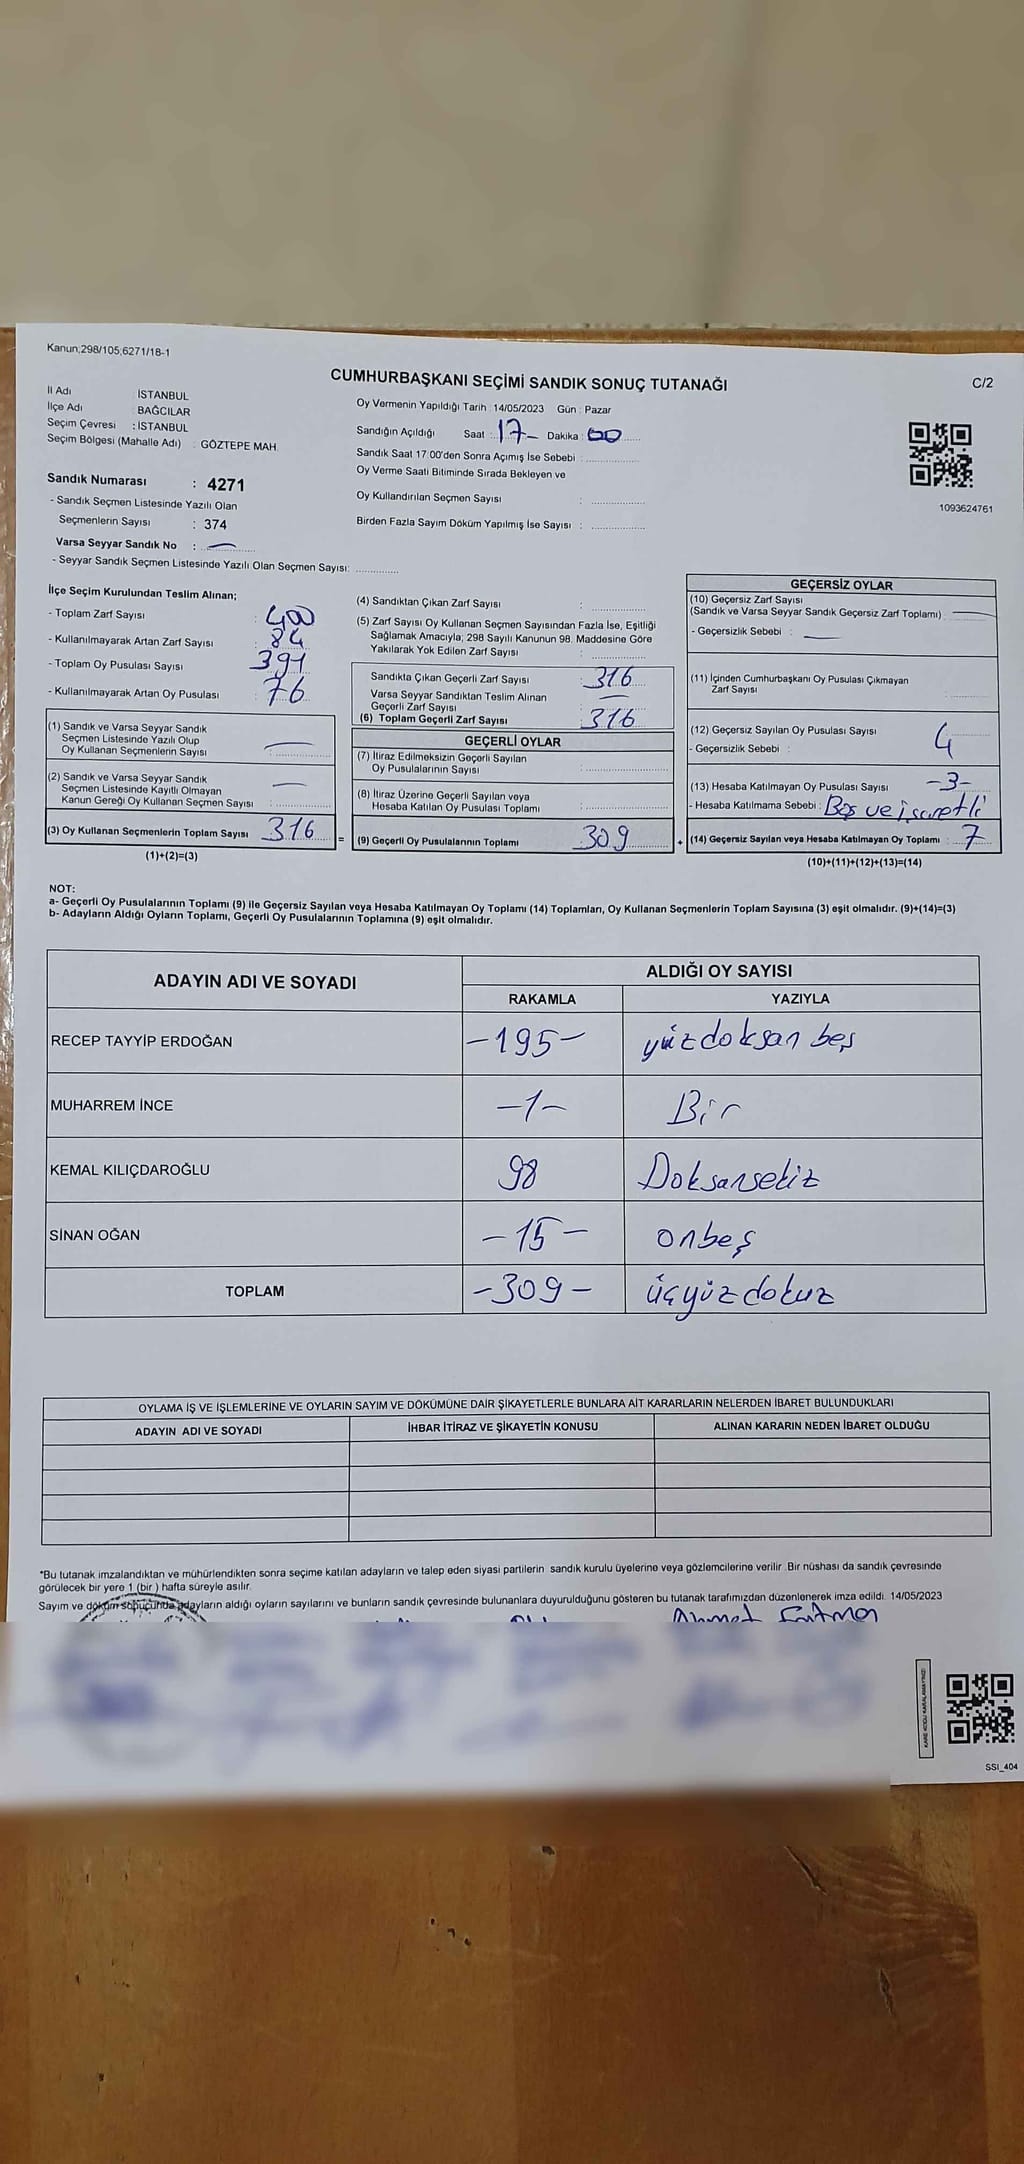 Kanun;298/105;6271/18-1
CUMHURBAŞKANI SEÇİMİ SANDIK SONUÇ TUTANAĞI
C/2
İl Adı : İSTANBUL
İlçe Adı : BAĞCILAR
Seçim Çevresi : İSTANBUL
Seçim Bölgesi (Mahalle Adı) : GÖZTEPE MAH.
Sandık Numarası : 4271
- Sandık Seçmen Listesinde Yazılı Olan
Seçmenlerin Sayısı : 374
Varsa Seyyar Sandık No : —
- Seyyar Sandık Seçmen Listesinde Yazılı Olan Seçmen Sayısı: ..............
Oy Vermenin Yapıldığı Tarih : 14/05/2023 Gün : Pazar
Sandığın Açıldığı Saat : 17- Dakika : 00
Sandık Saat 17:00'den Sonra Açımış İse Sebebi :
Oy Verme Saati Bitiminde Sırada Bekleyen ve
Oy Kullandırılan Seçmen Sayısı :
Birden Fazla Sayım Döküm Yapılmış İse Sayısı :
1093624761
İlçe Seçim Kurulundan Teslim Alınan;
- Toplam Zarf Sayısı : 400
- Kullanılmayarak Artan Zarf Sayısı : 84
- Toplam Oy Pusulası Sayısı : 391
- Kullanılmayarak Artan Oy Pusulası : 76
(1) Sandık ve Varsa Seyyar Sandık
Seçmen Listesinde Yazılı Olup
Oy Kullanan Seçmenlerin Sayısı : —
(2) Sandık ve Varsa Seyyar Sandık
Seçmen Listesinde Kayıtlı Olmayan
Kanun Gereği Oy Kullanan Seçmen Sayısı : —
(3) Oy Kullanan Seçmenlerin Toplam Sayısı : 316 =
(1)+(2)=(3)
(4) Sandıktan Çıkan Zarf Sayısı :
(5) Zarf Sayısı Oy Kullanan Seçmen Sayısından Fazla İse, Eşitliği
Sağlamak Amacıyla; 298 Sayılı Kanunun 98. Maddesine Göre
Yakılarak Yok Edilen Zarf Sayısı :
Sandıkta Çıkan Geçerli Zarf Sayısı : 316
Varsa Seyyar Sandıktan Teslim Alınan
Geçerli Zarf Sayısı : —
(6) Toplam Geçerli Zarf Sayısı : 316
GEÇERLİ OYLAR
(7) İtiraz Edilmeksizin Geçerli Sayılan
Oy Pusulalarının Sayısı :
(8) İtiraz Üzerine Geçerli Sayılan veya
Hesaba Katılan Oy Pusulası Toplamı :
(9) Geçerli Oy Pusulalarının Toplamı : 309 +
GEÇERSİZ OYLAR
(10) Geçersiz Zarf Sayısı
(Sandık ve Varsa Seyyar Sandık Geçersiz Zarf Toplamı) : —
- Geçersizlik Sebebi : —
(11) İçinden Cumhurbaşkanı Oy Pusulası Çıkmayan
Zarf Sayısı :
(12) Geçersiz Sayılan Oy Pusulası Sayısı : 4
- Geçersizlik Sebebi :
(13) Hesaba Katılmayan Oy Pusulası Sayısı : -3-
- Hesaba Katılmama Sebebi : Boş ve işaretli
(14) Geçersiz Sayılan veya Hesaba Katılmayan Oy Toplamı : 7
(10)+(11)+(12)+(13)=(14)
NOT:
a- Geçerli Oy Pusulalarının Toplamı (9) ile Geçersiz Sayılan veya Hesaba Katılmayan Oy Toplamı (14) Toplamları, Oy Kullanan Seçmenlerin Toplam Sayısına (3) eşit olmalıdır. (9)+(14)=(3)
b- Adayların Aldığı Oyların Toplamı, Geçerli Oy Pusulalarının Toplamına (9) eşit olmalıdır.
ADAYIN ADI VE SOYADI ALDIĞI OY SAYISI
RAKAMLA YAZIYLA
RECEP TAYYİP ERDOĞAN -195- yüzdoksan beş
MUHARREM İNCE -1- Bir
KEMAL KILIÇDAROĞLU 98 Doksansekiz
SİNAN OĞAN -15- onbeş
TOPLAM -309- üçyüzdokuz
OYLAMA İŞ VE İŞLEMLERİNE VE OYLARIN SAYIM VE DÖKÜMÜNE DAİR ŞİKAYETLERLE BUNLARA AİT KARARLARIN NELERDEN İBARET BULUNDUKLARI
ADAYIN ADI VE SOYADI İHBAR İTİRAZ VE ŞİKAYETİN KONUSU ALINAN KARARIN NEDEN İBARET OLDUĞU
*Bu tutanak imzalandıktan ve mühürlendikten sonra seçime katılan adayların ve talep eden siyasi partilerin sandık kurulu üyelerine veya gözlemcilerine verilir. Bir nüshası da sandık çevresinde
görülecek bir yere 1 (bir ) hafta süreyle asılır.
Sayım ve döküm sonucunda adayların aldığı oyların sayılarını ve bunların sandık çevresinde bulunanlara duyurulduğunu gösteren bu tutanak tarafımızdan düzenlenerek imza edildi. 14/05/2023
Ahmet
KARE KODU KARALAMAYINIZ!
SSI_404